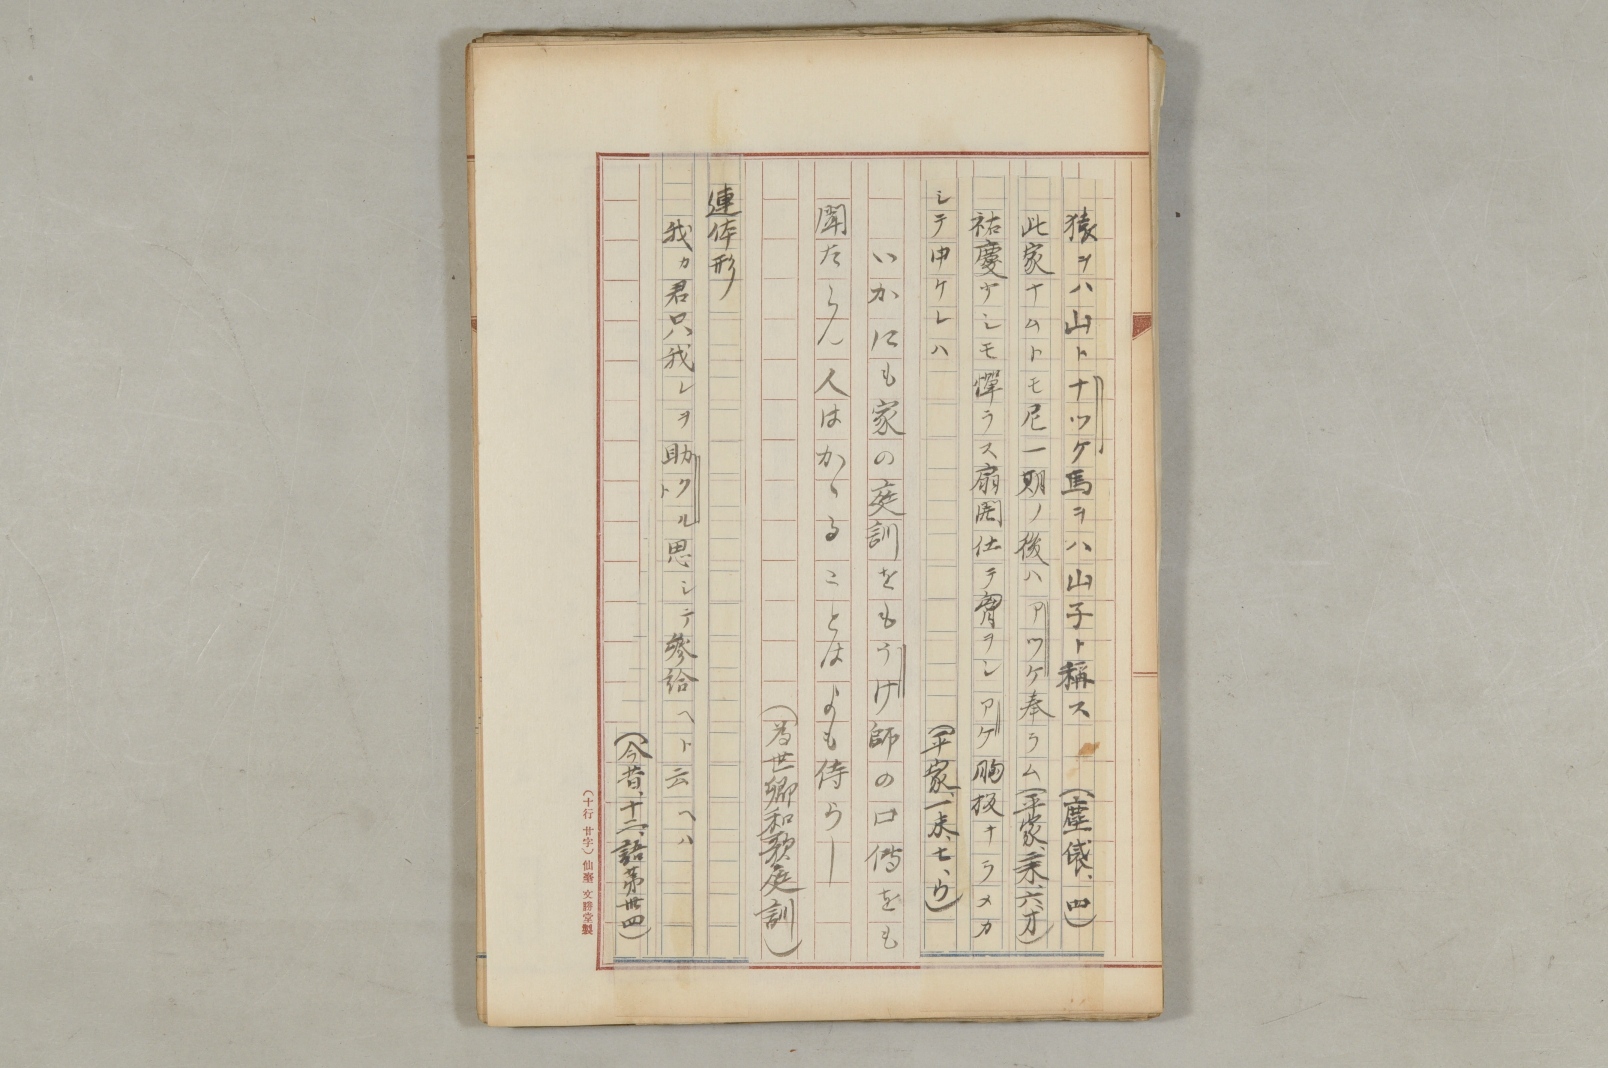 猿ヲハ山トナツケ馬ヲハ山子ト稱ス(塵袋、四)
此家ナムトモ尼一期ノ後ハアツケ奉ラム(平家、一末、六、オ)
祐慶少シモ憚ラス扇開仕テ冑ヲシアケ胸板ナラメカ
シテ申ケレハ(平家、一末、七、ウ)
いかにも家の庭訓をもうけ師の口傳をも
聞たらん人はかゝることはよも侍らし
(為世卿和歌庭訓)
連体形
我カ君只我レヲ助クルト思シテ参給ヘト云ヘハ
(今昔、十二、語第卅四)
(十行 廿字) 仙臺 文勝堂製